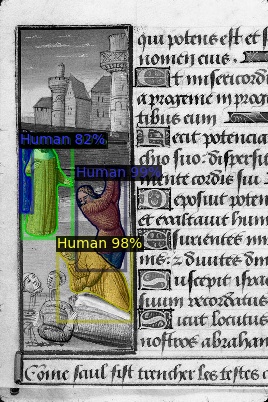 Human 82%
Human 99%
Human 98%
qui potens est et s
nomen eius
Et misericord
a progenie in prog
tibus eum
Fecit potencia
chio suo: dispersit
mente cordis sui
Deposuit poten
et exaltauit hum
Esurientes im
: et diuites dim
Suscepit isra
suum recordatus
Sicut locutus
nostros abraham
Come saul fist trencher les testes